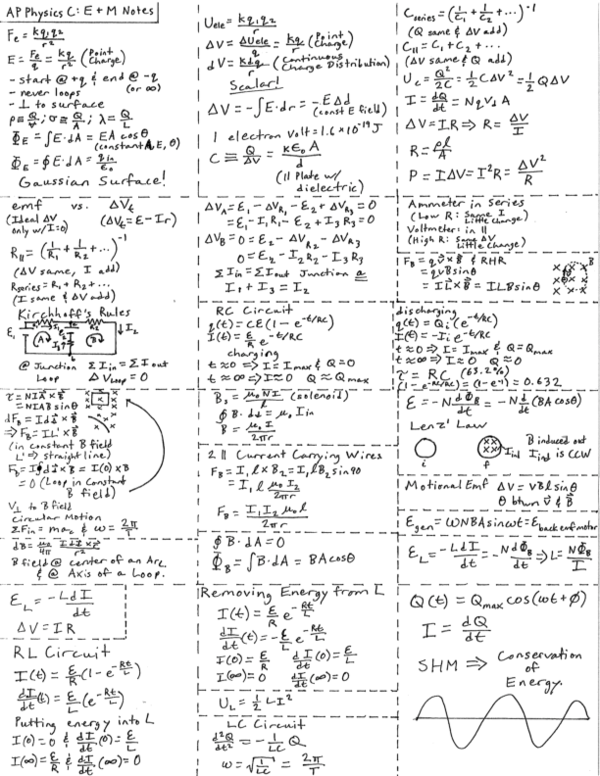 AP Physics C: E + M Notes
Fe = kq₁q₂/r²
E = Fe/q = kq/r² (Point Charge)
- start @ +q & end @ -q
- never loops (or ∞)
- ⊥ to surface
ρ = Q/V; σ = Q/A; λ = Q/L
Φ_E = ∫E·dA = EA cosθ
(constant A, E, θ)
Φ_E = ∮E·dA = q_in/ε₀
Gaussian Surface!
U_elec = kq₁q₂/r
ΔV = ΔU_elec/q = kq/r (Point Charge)
dV = kdq/r (Continuous Charge Distribution)
Scalar!
ΔV = -∫E·dr = -EΔd
(const E field)
1 electron volt = 1.6×10⁻¹⁹ J
C ≡ Q/ΔV = κε₀A/d
(|| Plate w/ dielectric)
C_series = (1/C₁ + 1/C₂ + ...)⁻¹
(Q same & ΔV add)
C_|| = C₁ + C₂ + ...
(ΔV same & Q add)
U_c = Q²/2C = ½CΔV² = ½QΔV
I = dQ/dt = NqV_dA
ΔV = IR ⇒ R = ΔV/I
R = ρl/A
P = IΔV = I²R = ΔV²/R
emf vs. ΔV_t
(Ideal ΔV only w/ I=0) (ΔV_t = ε - Ir)
R_|| = (1/R₁ + 1/R₂ + ...)⁻¹
(ΔV same, I add)
R_series = R₁ + R₂ + ...
(I same & ΔV add)
Kirchhoff's Rules
@ Junction Σ I_in = Σ I_out
Loop ΔV_Loop = 0
ΔV_A = ε₁ - ΔV_R₁ - ε₂ + ΔV_R₃ = 0
= ε₁ - I₁R₁ - ε₂ + I₃R₃ = 0
ΔV_B = 0 = ε₂ - ΔV_R₂ - ΔV_R₃
0 = ε₂ - I₂R₂ - I₃R₃
Σ I_in = Σ I_out Junction a
I₁ + I₃ = I₂
Ammeter in Series
(Low R: Same I Little Change)
Voltmeter: in ||
(High R: Same ΔV Little Change)
F_B = qv×B & RHR
= qvB sinθ
= IL×B = ILB sinθ
RC Circuit
q(t) = Cε(1 - e^(-t/RC))
I(t) = ε/R e^(-t/RC)
charging
t≈0 ⇒ I = I_max & Q = 0
t≈∞ ⇒ I≈0 Q≈Q_max
discharging
q(t) = Qᵢ(e^(-t/RC))
I(t) = -Iᵢ e^(-t/RC)
t≈0 ⇒ I = I_max & Q = Q_max
t≈∞ ⇒ I≈0 Q≈0
τ = RC (63.2%)
(1 - e^(-RC/RC)) = (1 - e⁻¹) = 0.632
τ = NIA×B
= NIAB sinθ
dF_B = Idl×B
⇒ F_B = IL'×B
(in constant B field)
L' ⇒ straight line)
F_B = I∮dl×B = I(0)×B
= 0 (Loop in Constant B field)
V⊥ to B field
Circular Motion
ΣF_in = ma_c & ω = 2π/T
dB = μ₀/4π Idl×r̂/r²
B field @ center of an Arc
& @ Axis of a Loop.
B_s = μ₀NI/l (solenoid)
∮B·ds = μ₀I_in
B = μ₀I/2πr
2 || Current Carrying Wires
F_B = I₁l×B₂ = I₁lB₂ sin90
= I₁l μ₀I₂/2πr
F_B = I₁I₂μ₀l/2πr
∮B·dA = 0
Φ_B = ∫B·dA = BA cosθ
ε = -N dΦ_B/dt = -N d/dt (BA cosθ)
Lenz' Law
B induced out
I_ind is CCW
i f
Motional Emf ΔV = vBl sinθ
θ btwn v & B
ε_gen = ωNBA sinωt = ε_back emf motor
ε_L = -L dI/dt = -N dΦ_B/dt ⇒ L = NΦ_B/I
ε_L = -L dI/dt
ΔV = IR
RL Circuit
I(t) = ε/R (1 - e^(-Rt/L))
dI/dt (t) = ε/L (e^(-Rt/L))
Putting energy into L
I(0) = 0 & dI/dt (0) = ε/L
I(∞) = ε/R & dI/dt (∞) = 0
Removing Energy from L
I(t) = ε/R e^(-Rt/L)
dI/dt (t) = -ε/L e^(-Rt/L)
I(0) = ε/R dI/dt (0) = ε/L
I(∞) = 0 dI/dt (∞) = 0
U_L = ½LI²
LC Circuit
d²Q/dt² = -1/LC Q
ω = √(1/LC) = 2π/T
Q(t) = Q_max cos(ωt + φ)
I = dQ/dt
SHM ⇒ Conservation of Energy.